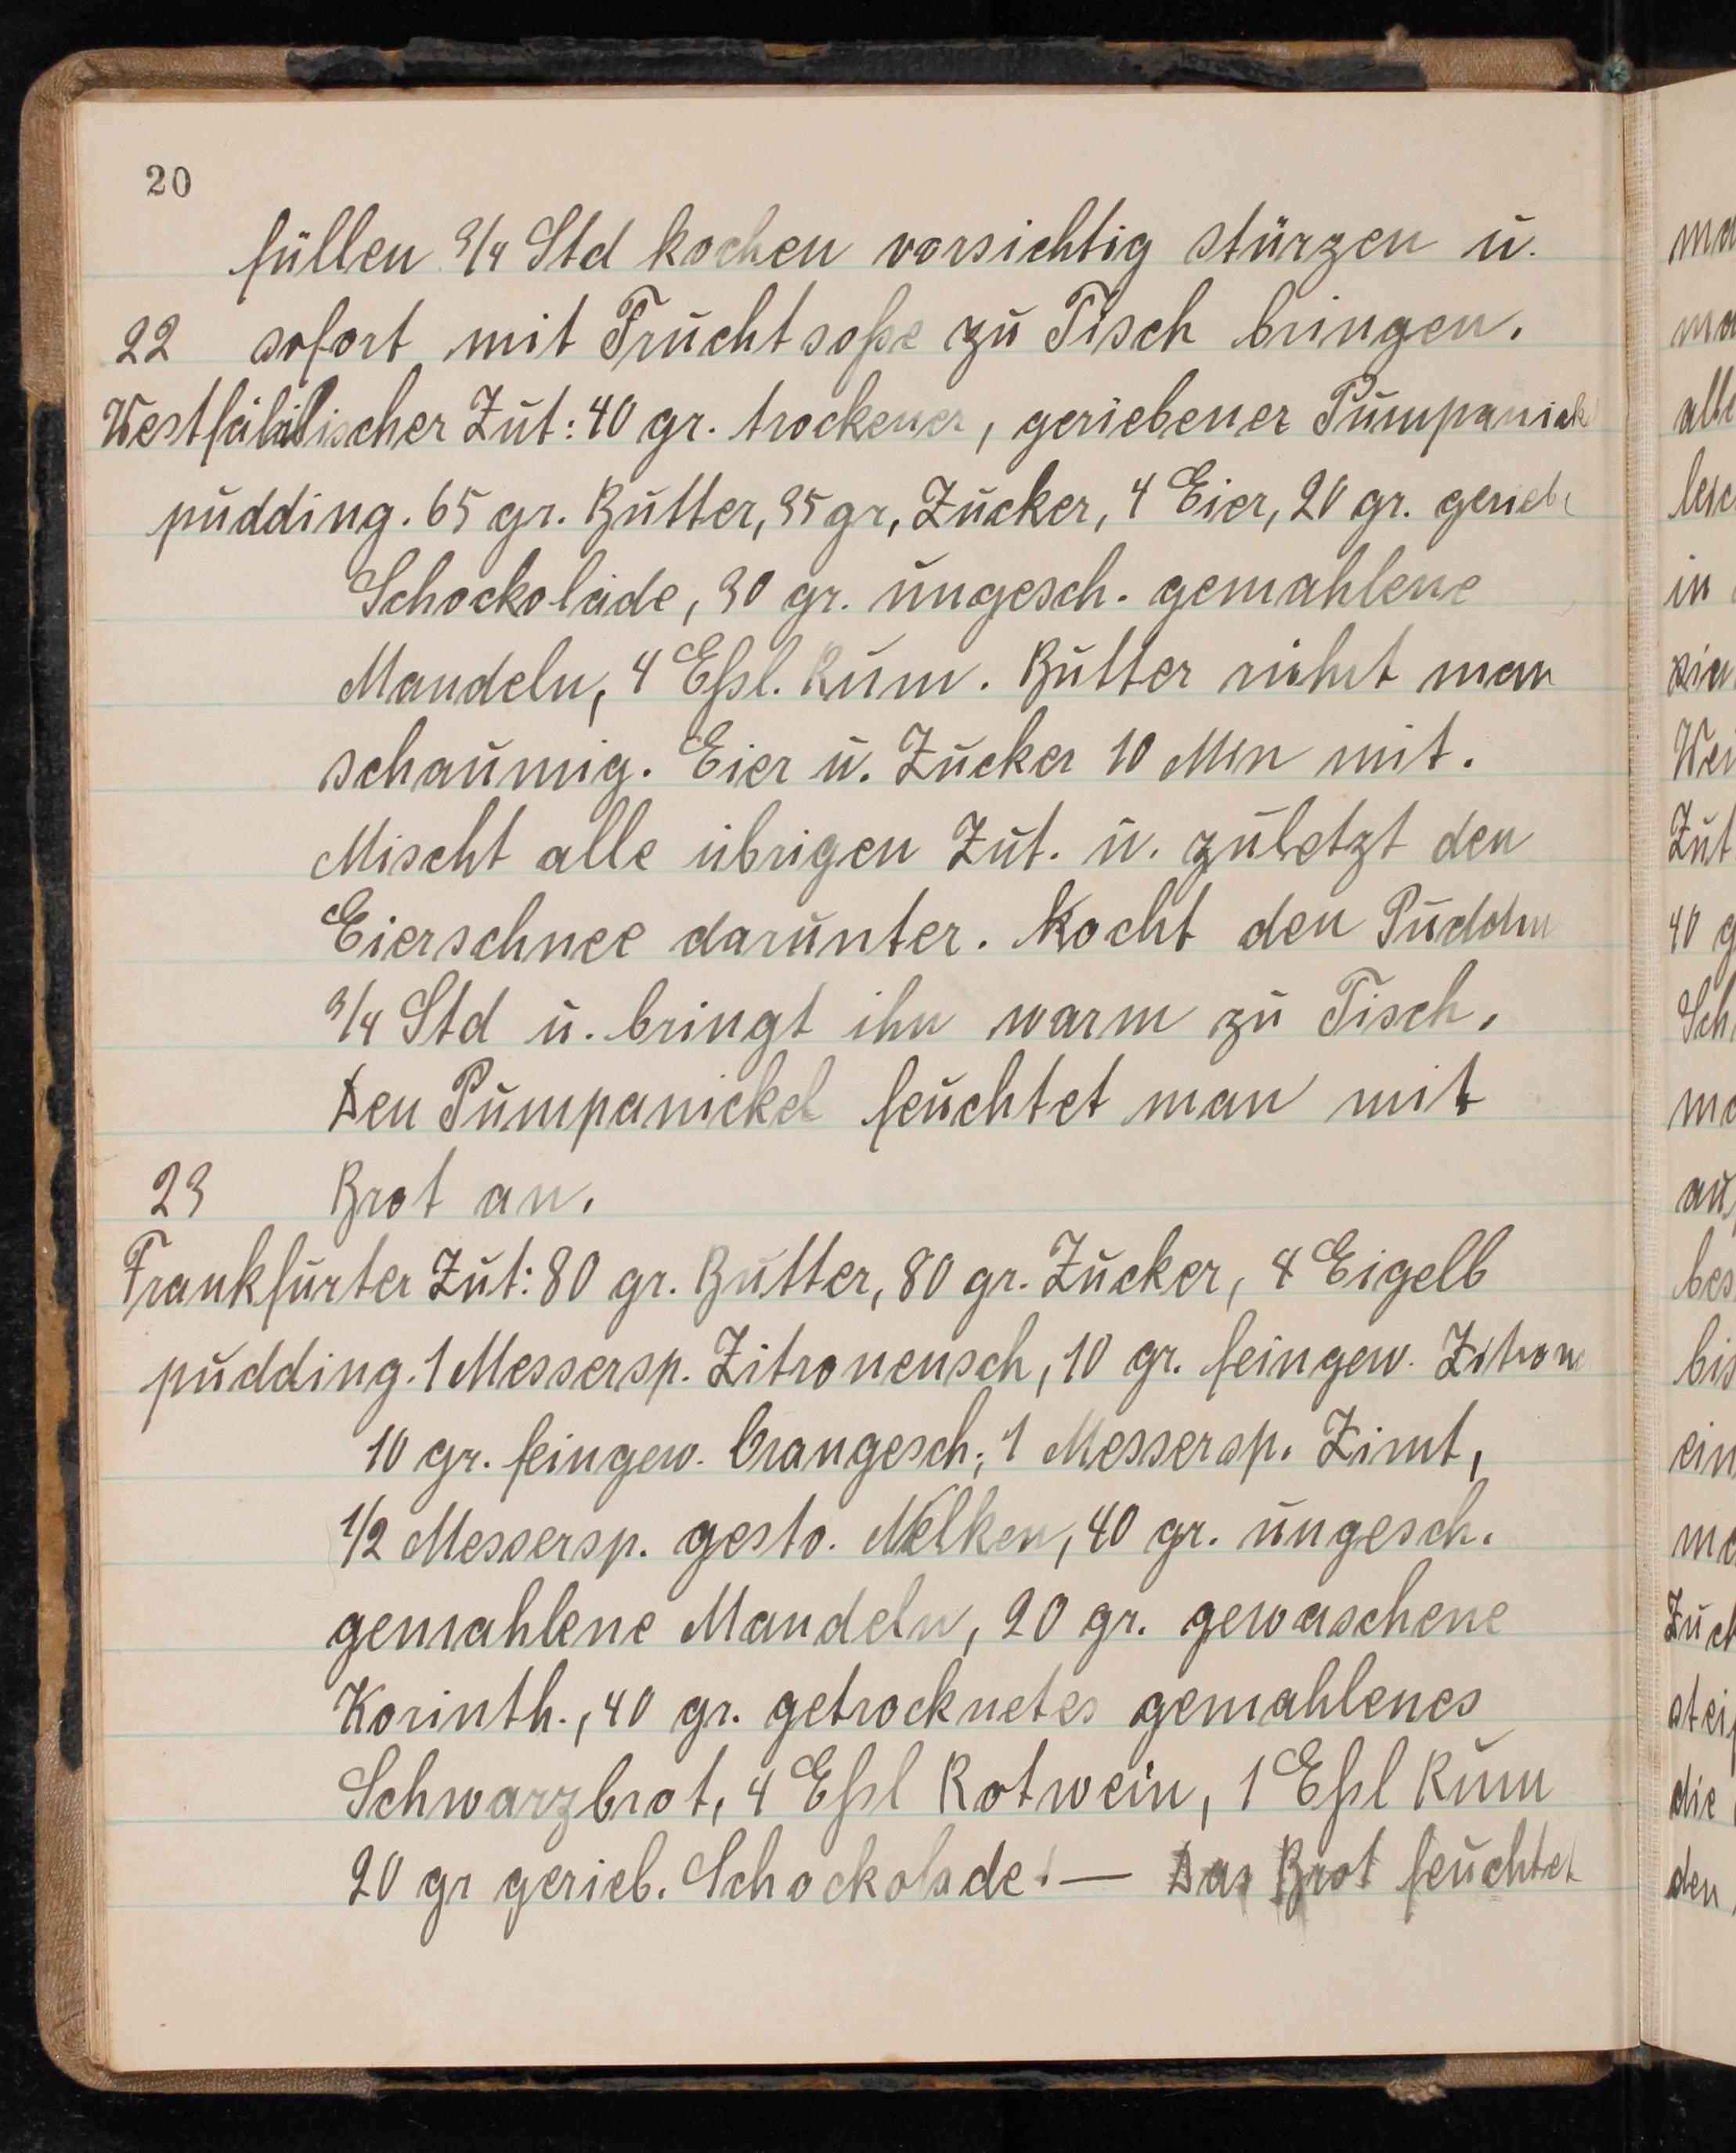 20
füllen 3/4 Std kochen vorsichtig stürzen u.
22 sofort mit Fruchtsoße zu Tisch bringen.
Westfälischer Zut: 40 gr. trockener, geriebener Pumpanick
pudding. 65 gr. Butter, 35 gr, Zucker, 4 Eier, 20 gr. gerieb
Schockolade, 30 gr. ungesch. gemahlene
Mandeln, 4 Eßl. Rum. Butter rührt man
schaumig. Eier u. Zucker 10 Min mit.
Mischt alle übrigen Zut. u. zuletzt den
Eierschnee darunter. Kocht den Puddin
3/4 Std u. bringt ihn warm zu Tisch.
Den Pumpanickel feuchtet man mit
23 Brot an.
Frankfurter Zut: 80 gr. Butter, 80 gr. Zucker, 4 Eigelb
pudding. 1 Messersp. Zitronensch, 10 gr. feingew. Zitrone
10 gr. feingew. Orangesch; 1 Messersp. Zimt,
1/2 Messersp. gesto. Nelken, 40 gr. ungesch.
gemahlene Mandeln, 20 gr. gewaschene
Korinth., 40 gr. getrocknetes gemahlenes
Schwarzbrot, 4 Eßl Rotwein, 1 Eßl Rum
20 gr gerieb. Schockolade. — Das Brot feuchtet